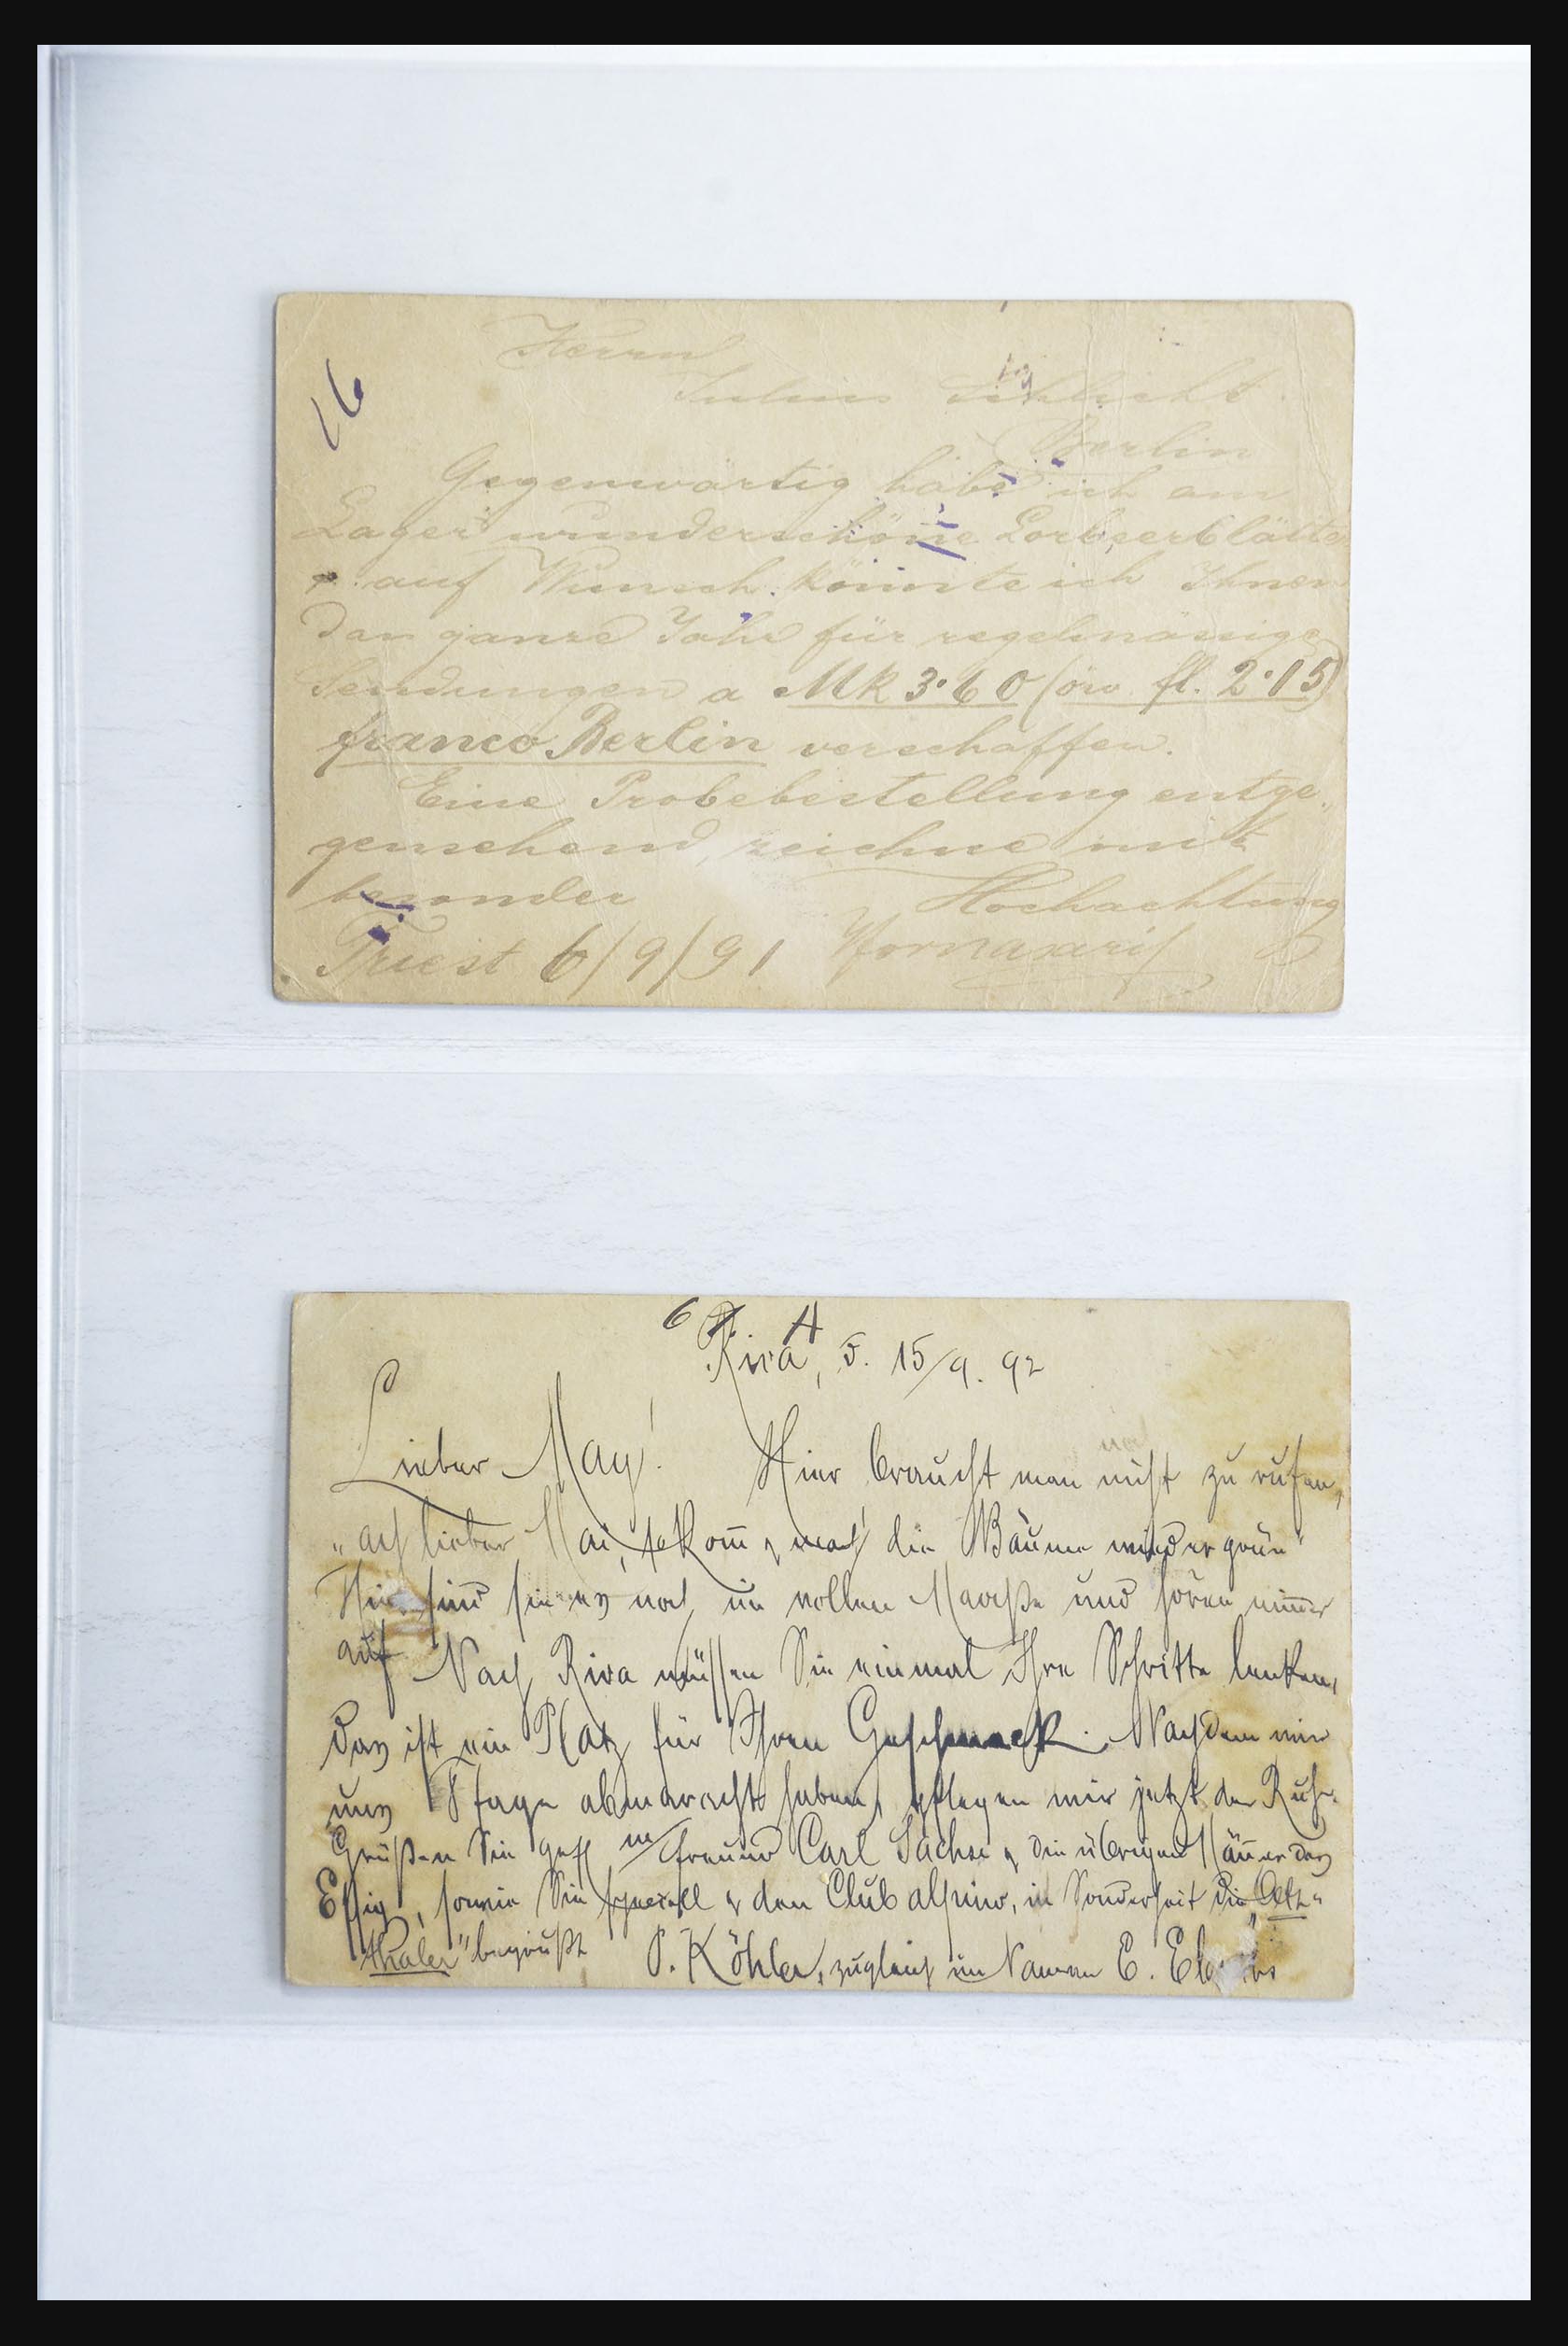 16
Herrn
Julius Schlicht
Berlin
Gegenwärtig habe ich am
Lager wunderschöne Lorbeerblätter
auf Wunsch könnte ich Ihnen
das ganze Jahr für regelmässige
Sendungen a Mk 3·60 (öw. fl. 2·15)
franco Berlin verschaffen.
Eine Probebestellung entge„
gensehend, zeichne mit
besonder Hochachtung
Triest 6/9/91
6 A
Riva, d. 15/9. 92
Lieber May! Hier braucht man nicht zu rufen,
„ach lieber Mai, kom̅ & mach die Bäume wieder grün"
Hier sind sie es noch im vollen Maaße und hören nim̅er
auf. Nach Riva müssen Sie einmal Ihre Schritte lenken,
das ist ein Platz für Ihren Geschmack. Nachdem wir
uns Tage haben, pflegen wir jetzt der Ruhe.
Grüßen Sie gefl m/ Freund Carl Sachse & die übrigen Män̅er des
Essig, sowie Sie speciell & den Club alpino, in Sonderheit die „Oetz„
thaler" begrüßt P. Köhler, zugleich im Namen E.